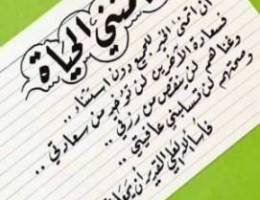 علمتني الحياة
أن أتمنى الخير للجميع دون استثناء ..
فسعادة الآخرين لن تؤخذ من سعادتي ..
وغناهم لن ينقص من رزقي ..
وصحتهم لن تسلبني عافيتي ..
فأسأل الله العلي القدير أن